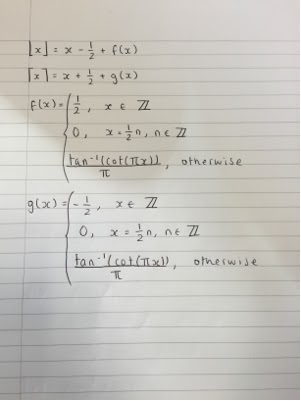 ⌊x⌋ = x - 1/2 + f(x)
⌈x⌉ = x + 1/2 + g(x)
f(x) = { 1/2, x ∈ ℤ
0, x = 1/2 n, n ∈ ℤ
tan⁻¹(cot(πx))/π, otherwise
g(x) = { -1/2, x ∈ ℤ
0, x = 1/2 n, n ∈ ℤ
tan⁻¹(cot(πx))/π, otherwise